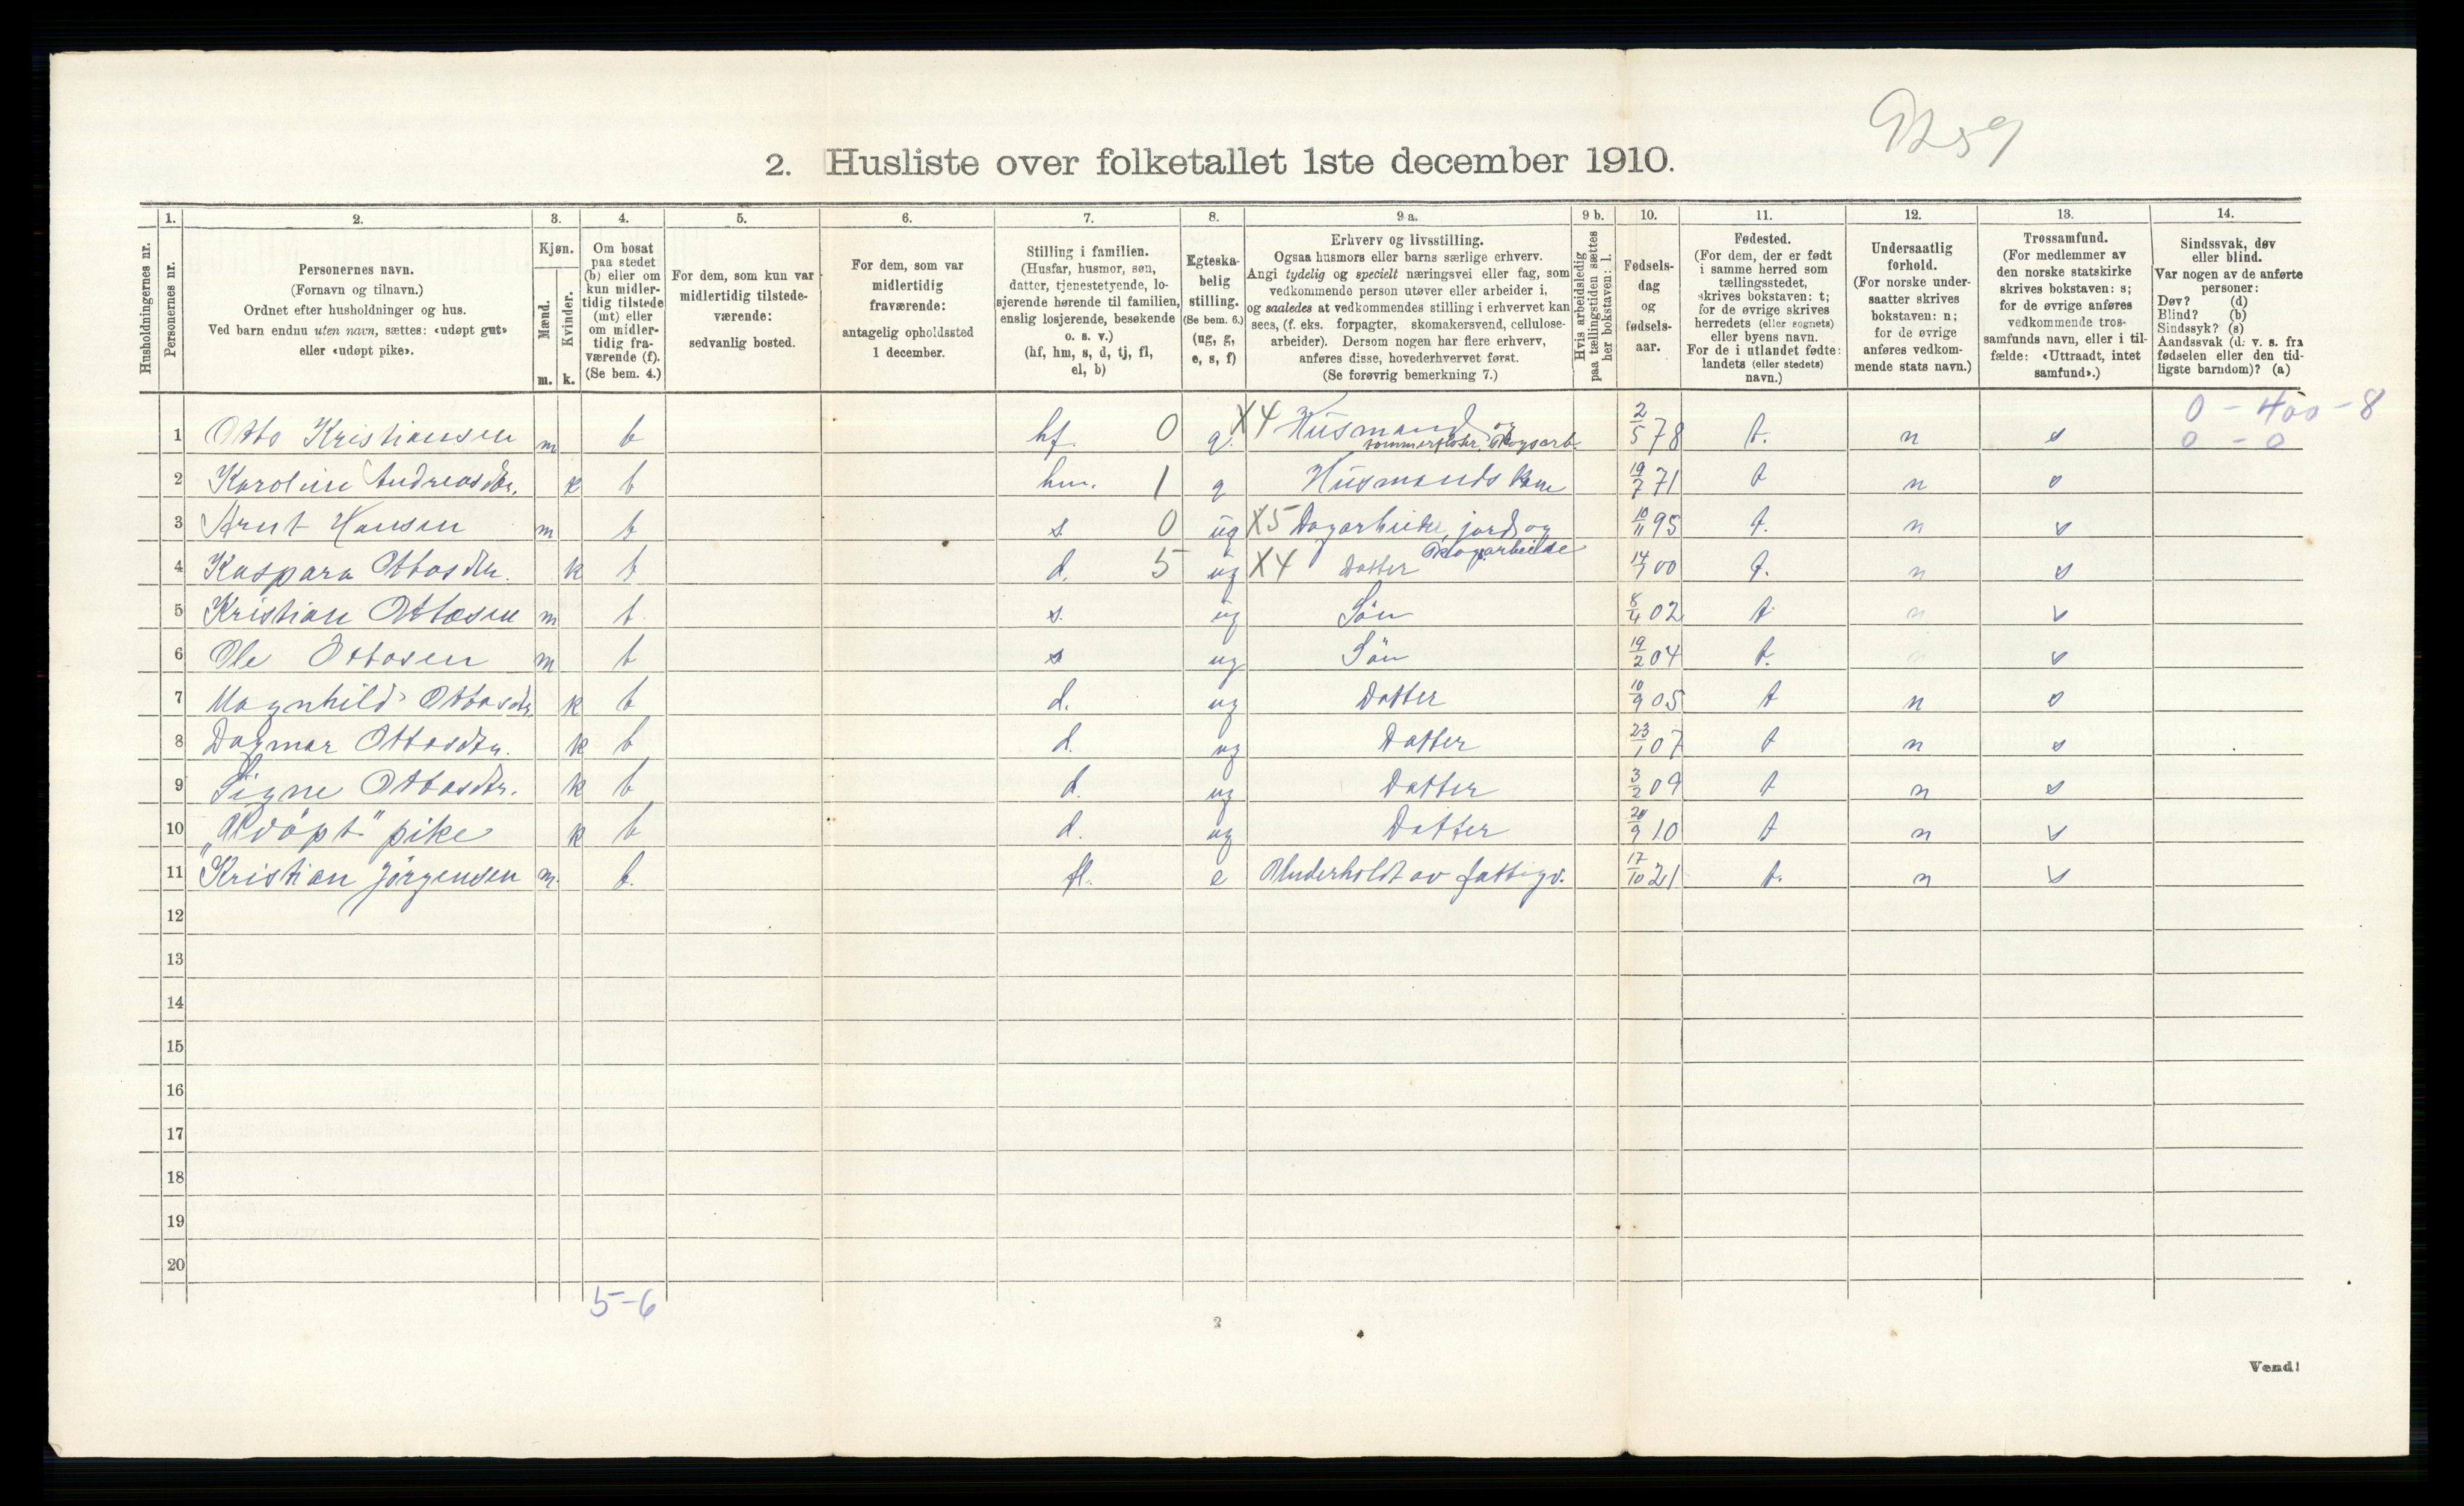 9259
2. Husliste over folketallet 1ste december 1910.
Husholdningernes nr.
1. Personernes nr.
2. Personernes navn.
(Fornavn og tilnavn.)
Ordnet efter husholdninger og hus.
Ved barn endnu uten navn, sættes: «udøpt gut»
eller «udøpt pike».
3. Kjøn.
Mænd. m.
Kvinder. k.
4. Om bosat
paa stedet
(b) eller om
kun midler-
tidig tilstede
(mt) eller
om midler-
tidig fra-
værende (f).
(Se bem. 4.)
5. For dem, som kun var
midlertidig tilstede-
værende:
sedvanlig bosted.
6. For dem, som var
midlertidig
fraværende:
antagelig opholdssted
1 december.
7. Stilling i familien.
(Husfar, husmor, søn,
datter, tjenestetyende, lo-
sjerende hørende til familien,
enslig losjerende, besøkende
o. s. v.)
(hf, hm, s, d, tj, fl,
el, b)
8. Egteska-
belig
stilling.
(Se bem. 6.)
(ug, g,
e, s, f)
9 a. Erhverv og livsstilling.
Ogsaa husmors eller barns særlige erhverv.
Angi tydelig og specielt næringsvei eller fag, som
vedkommende person utøver eller arbeider i,
og saaledes at vedkommendes stilling i erhvervet kan
sees, (f. eks. forpagter, skomakersvend, cellulose-
arbeider). Dersom nogen har flere erhverv,
anføres disse, hovederhvervet først.
(Se forøvrig bemerkning 7.)
9 b. Hvis arbeidsledig
paa tællingstiden sættes
her bokstaven: l.
10. Fødsels-
dag
og
fødsels-
aar.
11. Fødested.
(For dem, der er født
i samme herred som
tællingsstedet,
skrives bokstaven: t;
for de øvrige skrives
herredets (eller sognets)
eller byens navn.
For de i utlandet fødte:
landets (eller stedets)
navn.)
12. Undersaatlig
forhold.
(For norske under-
saatter skrives
bokstaven: n;
for de øvrige
anføres vedkom-
mende stats navn.)
13. Trossamfund.
(For medlemmer av
den norske statskirke
skrives bokstaven: s;
for de øvrige anføres
vedkommende tros-
samfunds navn, eller i til-
fælde: «Uttraadt, intet
samfund».)
14. Sindssvak, døv
eller blind.
Var nogen av de anførte
personer:
Døv? (d)
Blind? (b)
Sindssyk? (s)
Aandssvak (d. v. s. fra
fødselen eller den tid-
ligste barndom)? (a)
0 - 400 - 8
0 - 0
1 Otto Kristiansen m b hf. 0 g. X4 Husmand og
sommerfløter, skogsarb. 2/5 78 t. n s
2 Karoline Andreasdtr. k b hm. 1 g Husmands kone 19/7 71 t n s
3 Arnt Hansen m b s. 0 ug X5 Dagarbeider, jord og
skogarbeide 10/11 95 t. n s
4 Kaspara Ottosdtr. k b d. 5 ug X4 Datter 14/7 00 t. n s
5 Kristian Ottosen m b s. ug Søn 8/4 02 t n s
6 Ole Ottosen m b s ug Søn 19/2 04 t. n s
7 Magnhild Ottosdtr. k b d. ug Datter 10/9 05 t n s
8 Dagmar Ottosdtr. k b d. ug Datter 23/1 07 t n s
9 Signe Ottosdtr. k b d. ug Datter 3/2 09 t n s
10 „Udöpt" pike k b d. ug Datter 20/9 10 t n s
11 Kristian Jörgensen m. b. fl. e Underholdt av fattigv. 17/10 21 t. n s
12
13
14
15
16
17
18
19
20
5-6
2
Vend!